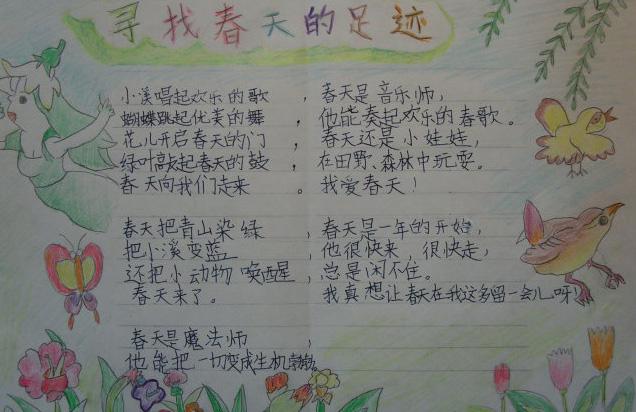 寻找春天的足迹
小溪唱起欢乐的歌，
蝴蝶跳起优美的舞，
花儿开启春天的门，
绿叶敲起春天的鼓，
春天向我们走来。
春天把青山染绿，
把小溪变蓝，
还把小动物唤醒，
春天来了。
春天是魔法师，
他能把一切变成生机勃勃。
春天是音乐师，
他能奏起欢乐的春歌。
春天还是小娃娃，
在田野、森林中玩耍。
我爱春天！
春天是一年的开始，
他很快来，很快走，
总是闲不住。
我真想让春天在我这多留一会儿呀